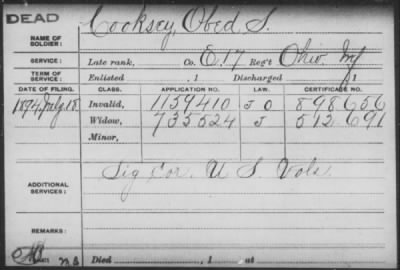 DEAD
NAME OF SOLDIER: Cooksey, Obed S.
SERVICE: Late rank, Co. E. 17 Reg't Ohio. Inf
TERM OF SERVICE: Enlisted , 1 Discharged , 1
DATE OF FILING. CLASS. APPLICATION NO. LAW. CERTIFICATE NO.
1894, July 18. Invalid, 1159410 J O 898656
Widow, 735524 J 512.691
Minor,
ADDITIONAL SERVICES: Sig Cor. U S Vols.
REMARKS:
Died , 1 , at